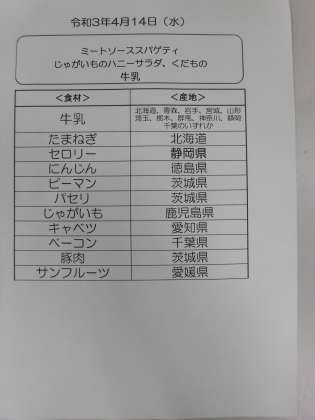 令和3年4月14日（水）
ミートソーススパゲティ
じゃがいものハニーサラダ、くだもの
牛乳
＜食材＞ ＜産地＞
牛乳 北海道、青森、岩手、宮城、山形
埼玉、栃木、群馬、神奈川、静岡
千葉のいずれか
たまねぎ 北海道
セロリー 静岡県
にんじん 徳島県
ピーマン 茨城県
パセリ 茨城県
じゃがいも 鹿児島県
キャベツ 愛知県
ベーコン 千葉県
豚肉 茨城県
サンフルーツ 愛媛県